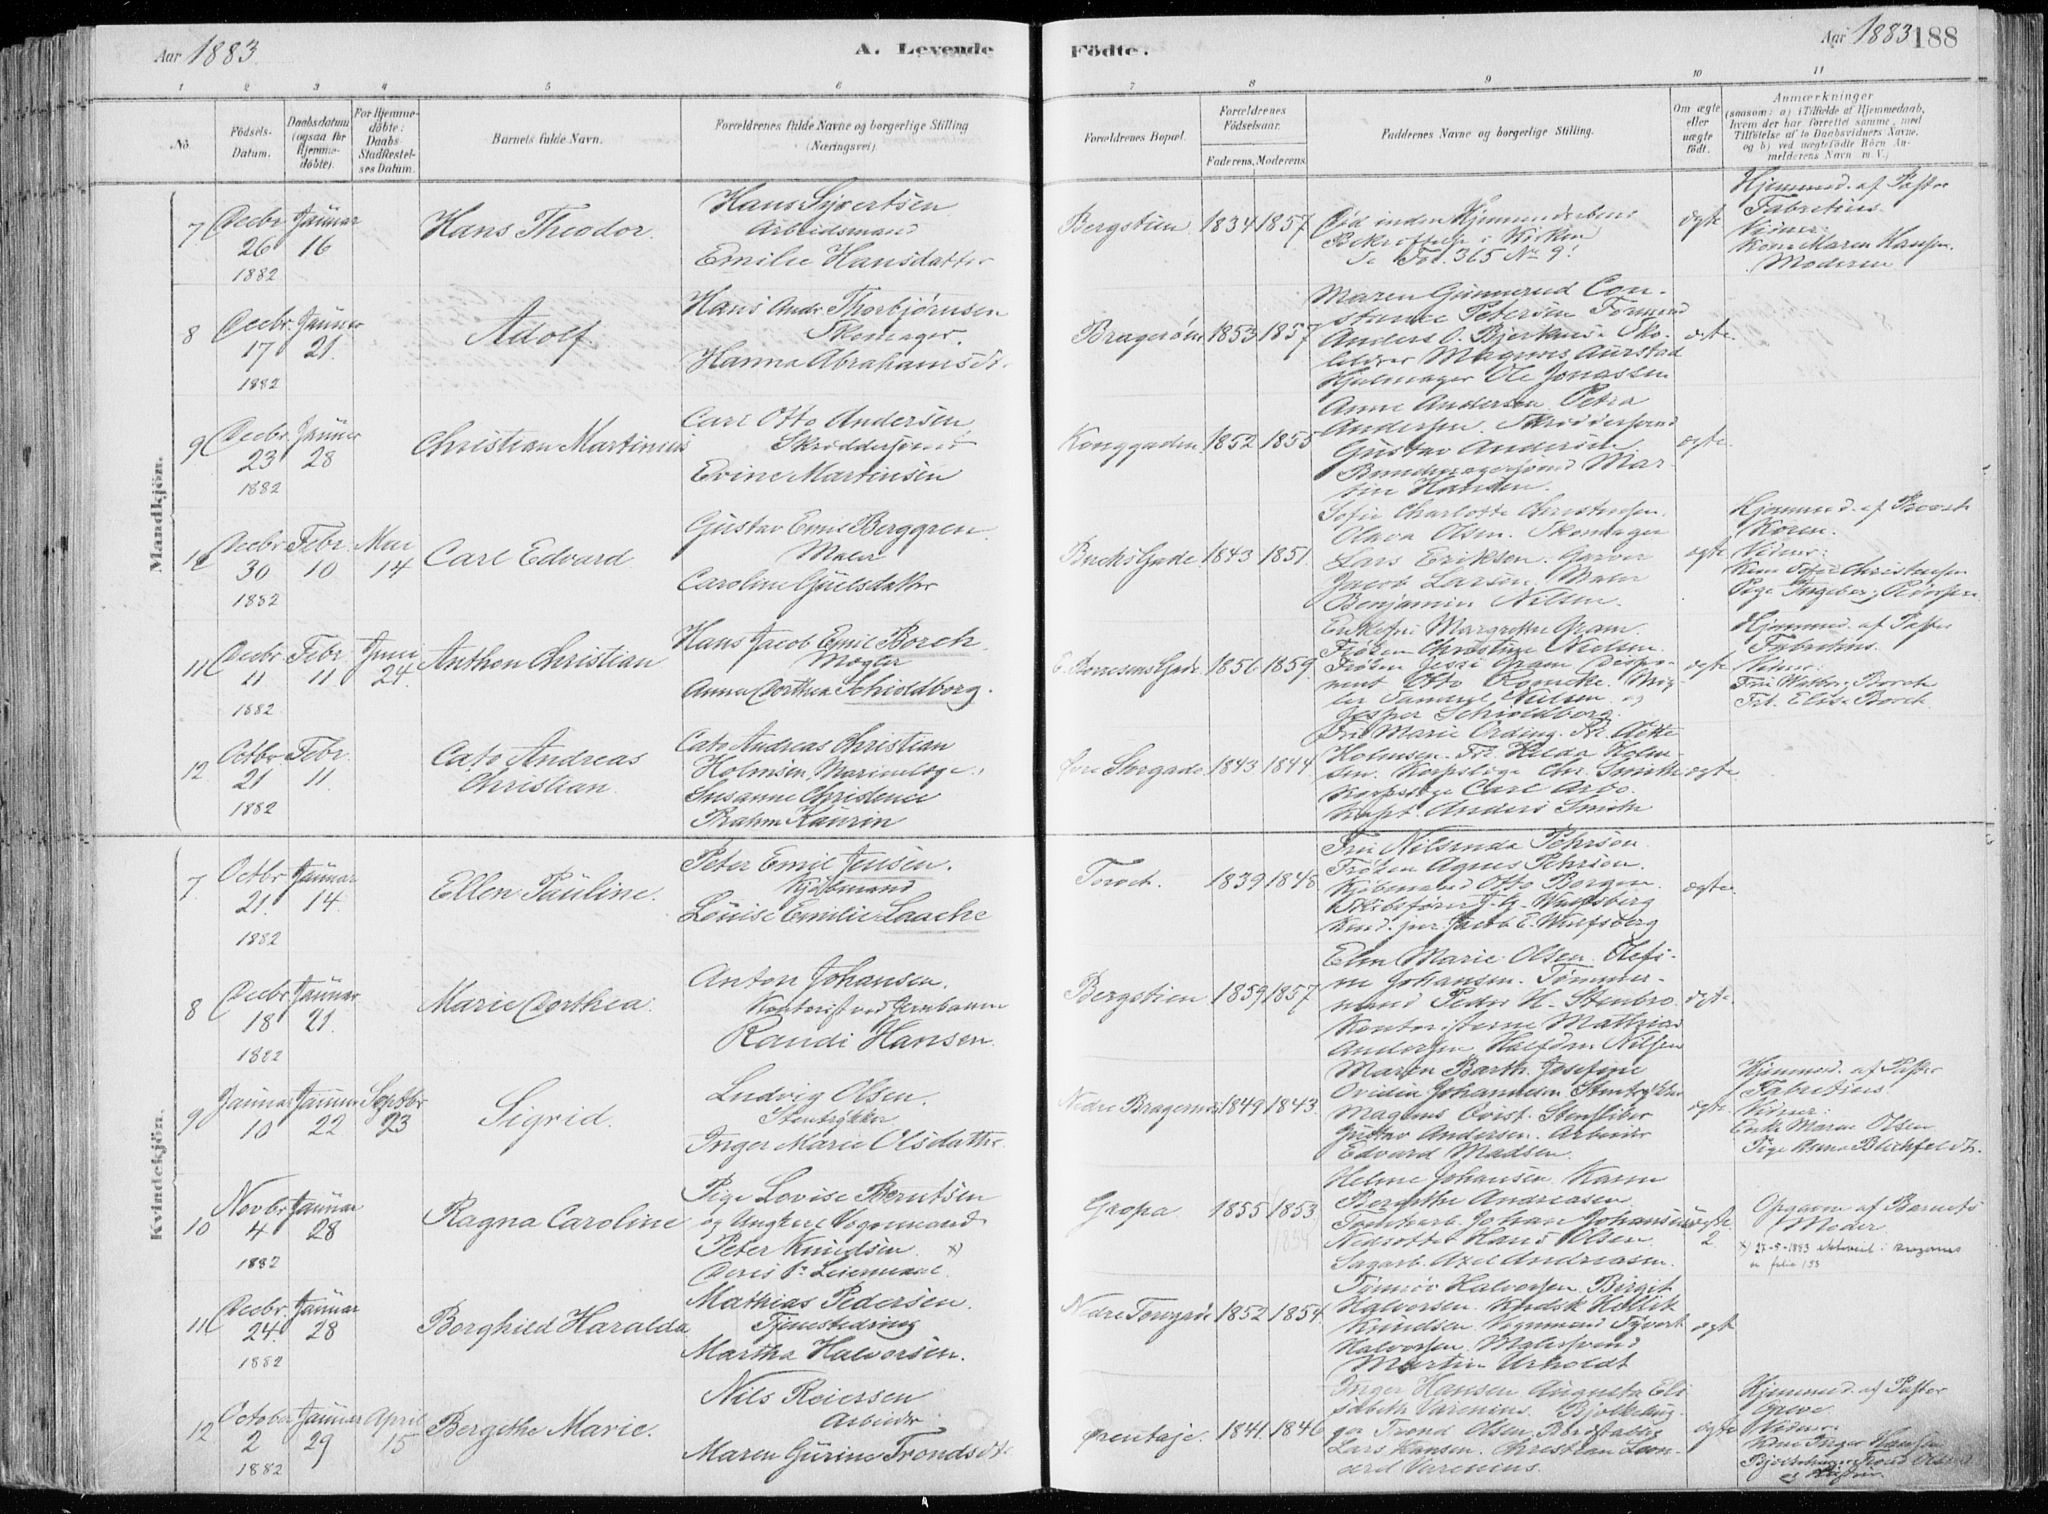 Aar 1883.
A. Levende Födte.
Aar 1883
188
1 2 3 4 5 6 7 8 9 10 11
No. Födsels-Datum. Daabsdatum (ogsaa for Hjemme-döbte). For Hjemme-döbte: Daabs-Stadfæstel-ses Datum. Barnets fulde Navn. Forældrenes fulde Navne og borgerlige Stilling (Næringsvei). Forældrenes Bopæl. Forældrenes Födselsaar. Faderens. Moderens. Faddernes Navne og borgerlige Stilling. Om ægte eller uægte födt.
Anmærkninger
(saasom: a) i Tilfælde af Hjemmedaab,
hvem der har forrettet samme, med
Tilföielse af to Daabsvidners Navne.
og b) ved uægtefödte Börn An-
melderens Navn m. V.)
Mandkjön.
7 Decbr 26 1882 Januar 16
Hans Theodor.
Hans Syvertsen
Arbeidsmand
Emilie Hansdatter
Bergstien 1834 1857
Död inden Hjemmedaabens
Bekræftelse i Kirken
Se Fol. 365 No 9.
ægte
Hjemmed. af Pastor
Fabretius.
Vidner:
Kone Maren Hansen.
Moderen
8 Decbr. 17 1882 Januar 21.
Adolf.
Hans Andr. Thorbjørnsen
Skomager.
Hanna Abrahamsdt.
Bragerøen 1853 1857
Maren Gunnerud Con-
stance Petersen Formand
Anders O. Bjerknes
Magnus Aurstad
Hjulmager Ole Jonassen
ægte.
9 Decbr. 23 1882 Januar 28
Christian Martinius
Carl Otto Andersen
Skræddersvend
Evine Martinsen
Konggaden 1852 1855
Anne Andersen Petra
Andersen. Skræddersvend
Gustav Andersen
Mar-
tin Hansen.
ægte.
10 Decbr. 30 1882 Febr. 10 Mai 14
Carl Edvard
Gustav Emil Berggren.
Maler
Caroline
Bucks Gade 1843 1851.
Sofie Charlotte Christensen.
Olava Olsen. Skomager
Lars Eriksen. Garver
Jacob Larsen. Maler
Benjamin Nilsen.
ægte
Hjemmed. af Provst
Koren.
Vidner:
Kone Sofie Christensen
Pige Ingeborg Pedersen
11 Decbr. 11 1882 Febr. 11 Juni 24.
Anthon Christian
Hans Jacob Emil Borch.
Mægler
Anna Dorthea Schioldborg.
1856 1859
Enkefru Margrethe Gram.
Frøken Christine Nielsen.
Frøken Jessi Gram Dispo-
nent Otto Mæg-
ler Samuel Nielsen og
Jesper Schioldborg.
ægte
Hjemmed. af Pastor
Fabritius.
Vidner:
Fru Borch
Frk. Elise Borch.
12. Octbr. 21 1882 Febr. 11.
Cato Andreas
Christian.
Cato Andreas Christian
Holmsen, Marinelæge.
Susanne Christence
Brahm Kaurin
Øvre Storgade 1843 1844
Fru Marie Ording. Fr.
Holmsen. Fr. Hilda Holm-
sen. Korpslæge Chr. Smith
Korpslæge Carl Arbo.
Kapt. Anders Smith
ægte
Kvindekjön.
7. Octbr. 21. 1882 Januar 14.
Ellen Pauline.
Peter Emil Jensen.
Kjøbmand
Louise Emilie Laache
Torvet. 1839 1848
Fru Nilsenda Pehrson.
Frøken Agnes Pehrson.
Kjøbmand Otto Borgen.
Skibsfører J. G. Wulfsberg
Kand. jur. Jacob E. Wulfsberg
ægte.
8 Decbr. 18 1882 Januar 21.
Marie Dorthea.
Anton Johansen.
Kontorist ved Jernbanen
Randi Hansen.
Bergstien 1859 1857
Elen Marie Olsen. Olefi-
ne Johansen. Tømmer-
mand Peder H. Stenbro.
Kontoristerne Mathias
Andersen Halfdan Nilsen
ægte.
9 Januar 10 Januar 22 Septbr 23
Sigrid.
Ludvig Olsen.
Stentrykker
Inger Marie Olsdatter.
Nedre Bragernes 1849 1843.
Maren Barth. Josefine
Ovidia Johannesen Stentrykker
Magnus Qvist. Stensliber
Gustav Andersen. Arbeider
Edvard Madsen.
ægte.
Hjemmed. af Pastor
Fabritius.
Vidner:
Enke Maren Olsen
Pige Anna Blichfeldt.
10 Novbr 4 1882 Januar 28
Ragna Caroline
Pige Lovise Berntsen
og Ungkarl Vognmand
Peter Knudsen. x)
Deres 1ste Leiermaal.
Gropa 1855 1853 1854
Helene Johansen Karen
Bergithe Andreasen.
Johan Johansen
Nedsattet Hans Olsen.
Sagarb. Axel Andreasen.
uægte 2
Opgaven af Barnets
Moder.
x) 27-5-1883 ekteviet i Bragernes
se folio 133
11 Decbr. 24. 1882 Januar 28
Borghild Haralda
Mathias Pedersen.
Tjenestedreng
Martha Halvorsen.
Nedre Torvgade 1852 1854.
Halvorsen. Birgit
Halvorsen.
Knudsen. Vognmand Syvert
Halvorsen. Malersvend
Martin Urholdt
ægte
12 October 2 1882 Januar 29 April 15
Bergethe Marie.
Nils Reiersen
Arbeider
Maren Gurine Trondsdt.
Ørentaje. 1841 1846
Inger Hansen Augusta Eli-
sabeth Varenius. Bjelkehug-
ger Trond Olsen,
Lars Hansen. Christian Leon-
ard Varenius.
ægte
Hjemmed. af Pastor
Greve.
Vidner:
Kone Inger Hansen
Bjelkehugger Trond Olsen